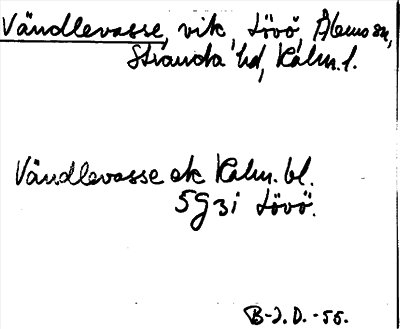 Vändlevasse, vik, Lövö, Ålems sn,
Stranda hd, Kalm. l.
Vändlevasse ek Kalm. bl.
5G3i Lövö.
B-J.D. -55.